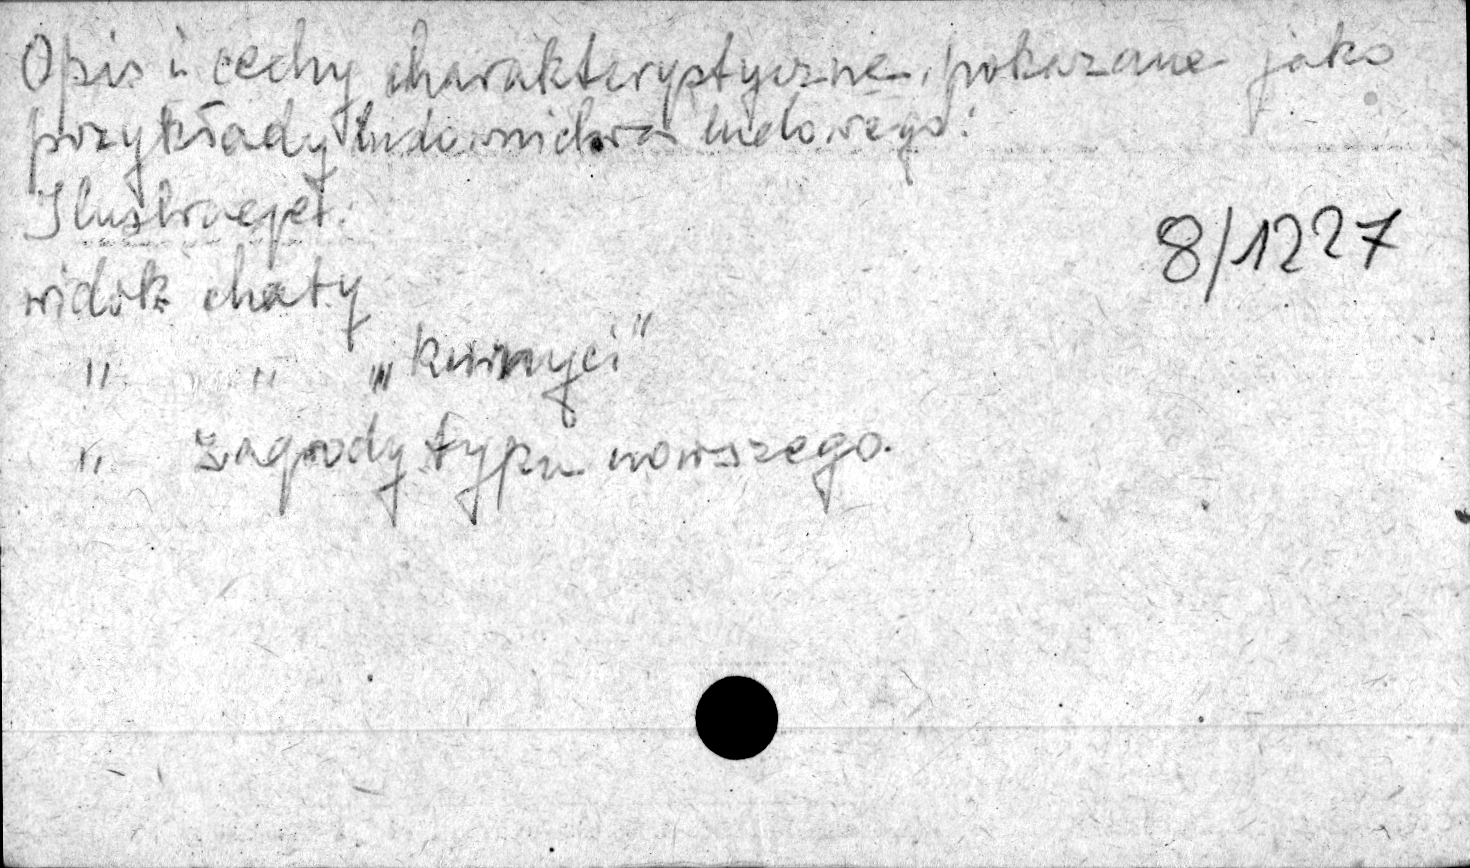 Opis i cechy charakterystyczne, pokazane jako
przykłady budownictwa ludowego:
Ilustracje:
8/1227
widok chaty
" " „kurnyci"
" zagrody typu nowszego.